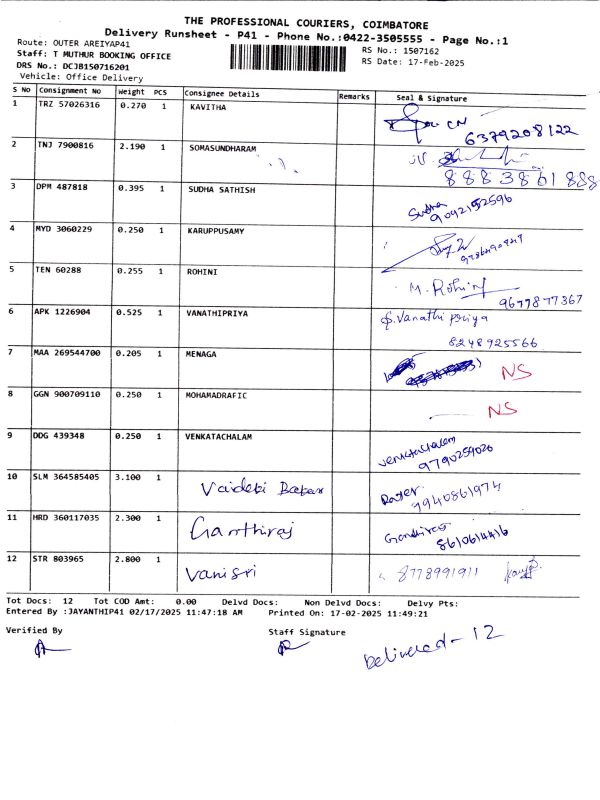 THE PROFESSIONAL COURIERS, COIMBATORE
Delivery Runsheet - P41 - Phone No.:0422-3505555 - Page No.:1
Route: OUTER AREIYAP41
Staff: T MUTHUR BOOKING OFFICE
RS No.: 1507162
DRS No.: DCJB150716201
RS Date: 17-Feb-2025
Vehicle: Office Delivery
S No Consignment No Weight PCS Consignee Details Remarks Seal & Signature
1 TRZ 57026316 0.270 1 KAVITHA
6379208122
2 TNJ 7900816 2.190 1 SOMASUNDHARAM
8883861888
3 DPM 487818 0.395 1 SUDHA SATHISH Sudha
9092152596
4 MYD 3060229 0.250 1 KARUPPUSAMY
5 TEN 60288 0.255 1 ROHINI M. Rohini
9677877367
6 APK 1226904 0.525 1 VANATHIPRIYA S. Vanathi priya
8248925566
7 MAA 269544700 0.205 1 MENAGA NS
8 GGN 900709110 0.250 1 MOHAMADRAFIC NS
9 DDG 439348 0.250 1 VENKATACHALAM venkatachalam
9790259026
10 SLM 364585405 3.100 1 Vaidebi
9940861974
11 HRD 360117035 2.300 1 Ganthiraj
8610614416
12 STR 803965 2.800 1 Vanisri 8778991911
Tot Docs: 12 Tot COD Amt: 0.00 Delvd Docs: Non Delvd Docs: Delvy Pts:
Entered By :JAYANTHIP41 02/17/2025 11:47:18 AM Printed On: 17-02-2025 11:49:21
Verified By Staff Signature
Delivered - 12